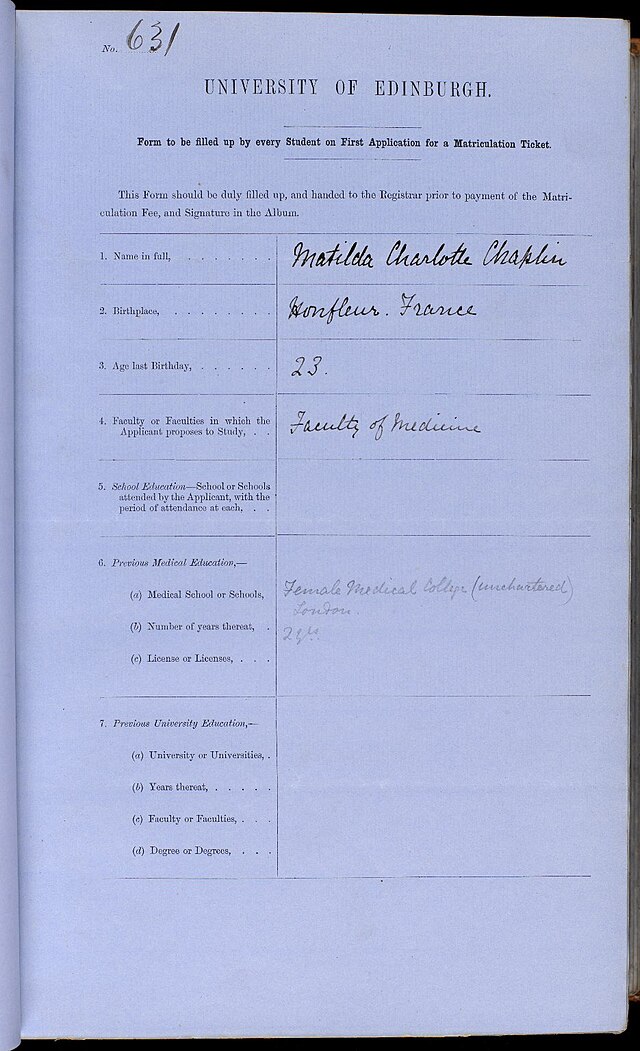 No. 631
UNIVERSITY OF EDINBURGH.
Form to be filled up by every Student on First Application for a Matriculation Ticket.
This Form should be duly filled up, and handed to the Registrar prior to payment of the Matri-
culation Fee, and Signature in the Album.
1. Name in full, . . . . . . . Matilda Charlotte Chaplin
2. Birthplace, . . . . . . . . Honfleur. France
3. Age last Birthday, . . . . . . 23.
4. Faculty or Faculties in which the
Applicant proposes to Study, . . Faculty of Medicine
5. School Education—School or Schools
attended by the Applicant, with the
period of attendance at each, . .
6. Previous Medical Education,—
(a) Medical School or Schools, Female Medical College (unchartered)
London.
(b) Number of years thereat, . 2 yrs
(c) License or Licenses, . . .
7. Previous University Education,—
(a) University or Universities, .
(b) Years thereat, . . . . .
(c) Faculty or Faculties, . . .
(d) Degree or Degrees, . . .